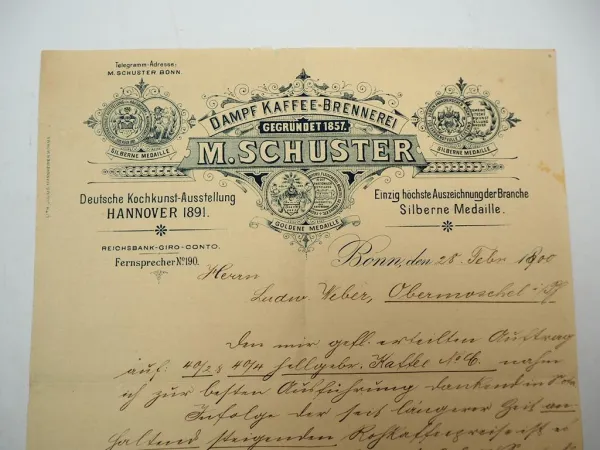 Telegramm-Adresse:
M. SCHUSTER BONN.
DAMPF KAFFEE-BRENNEREI
GEGRÜNDET 1857.
M. SCHUSTER
SILBERNE MEDAILLE
SILBERNE MEDAILLE
GOLDENE MEDAILLE
Deutsche Kochkunst-Ausstellung
HANNOVER 1891.
Einzig höchste Auszeichnung der Branche
Silberne Medaille.
REICHSBANK-GIRO-CONTO.
Fernsprecher No 190.
Bonn, den 28 Febr. 1900
Herrn
Ludw. Weber, Obermoschel
Den mir gefl. erteilten Auftrag
auf: 40/2 & 40/4 hellgebr. Kaffee No 6. nahm
ich zur besten Ausführung dankend in
Infolge der seit längerer Zeit an
haltend steigenden Rohkaffeepreise ist es